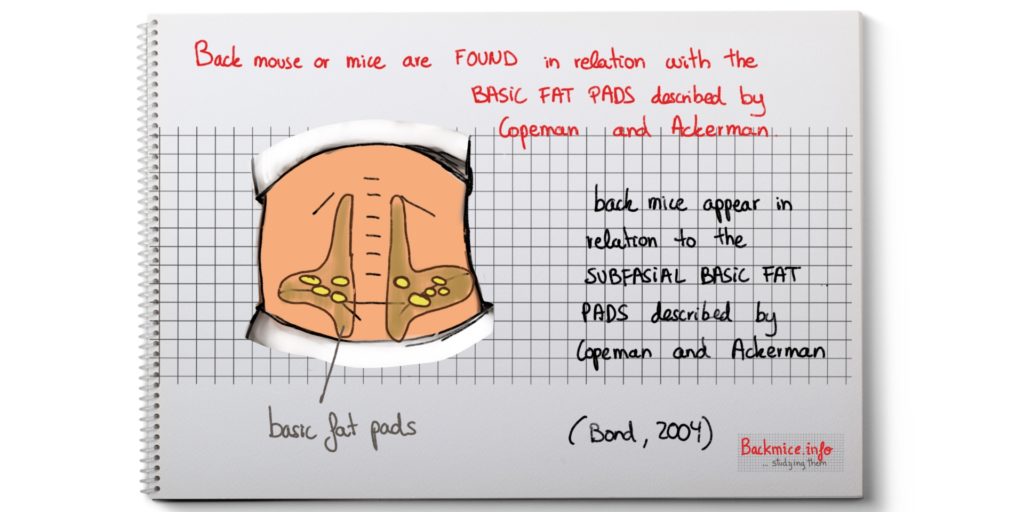 Back mouse or mice are FOUND in relation with the
BASIC FAT PADS described by
Copeman and Ackerman.
back mice appear in
relation to the
SUBFASIAL BASIC FAT
PADS described by
Copeman and Ackerman
basic fat pads
(Bond, 2004)
Backmice.info
... studying them